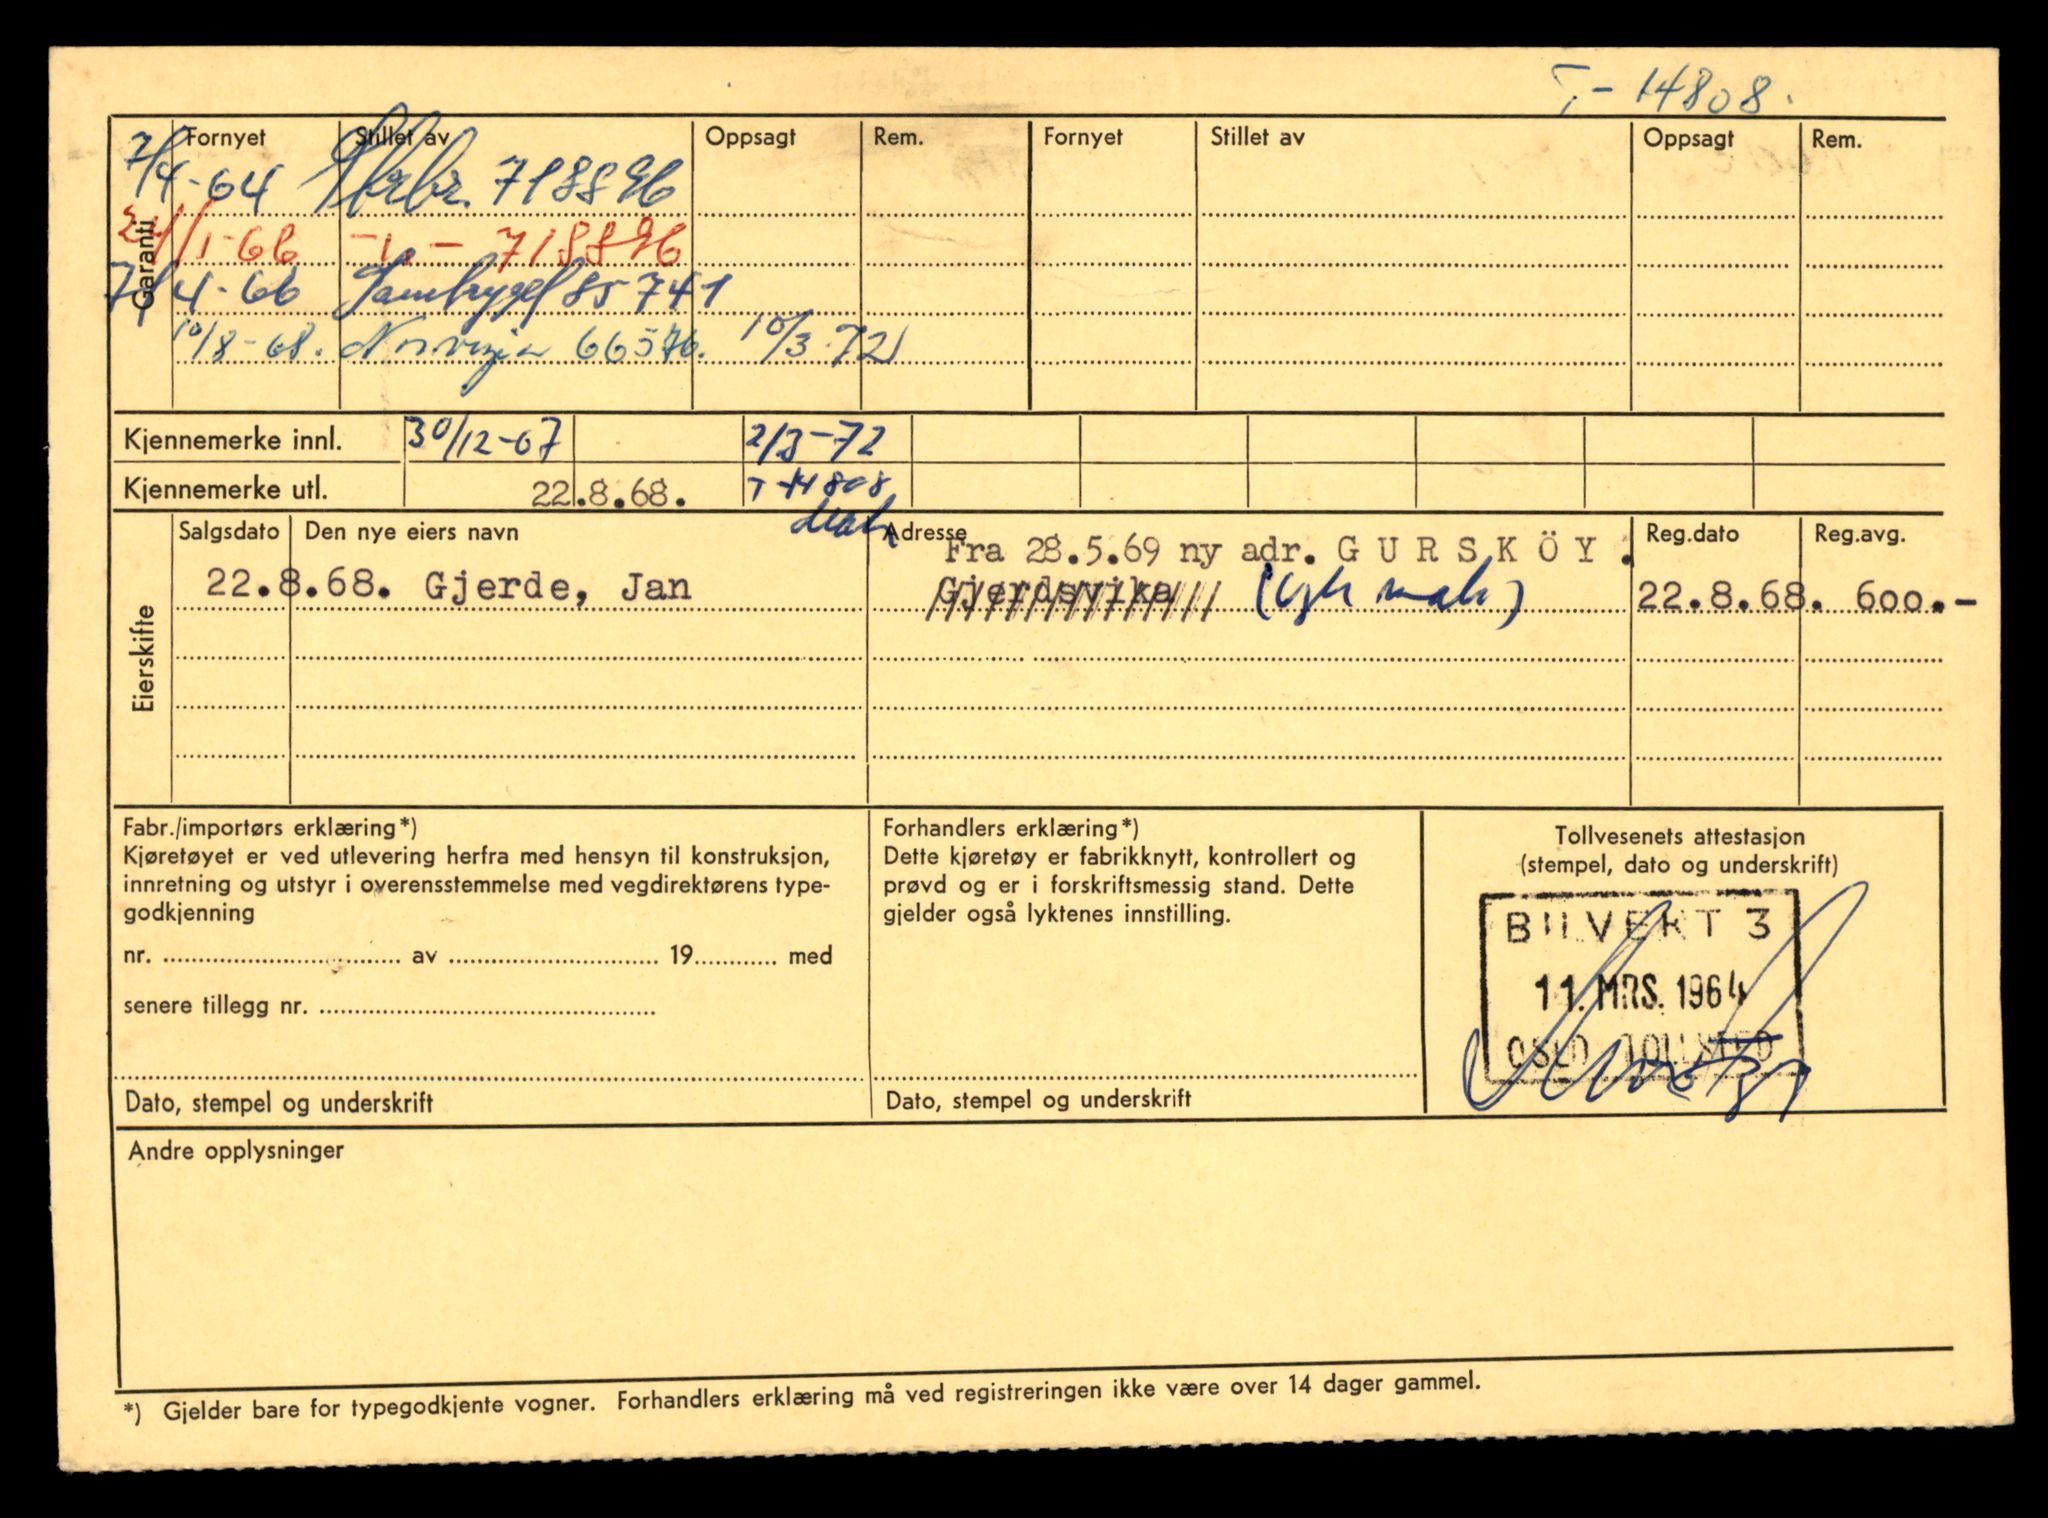 T-14808.
Garanti Fornyet Stillet av Oppsagt Rem. Fornyet Stillet av Oppsagt Rem.
7/4-64 718896
24/1-66 -"- 718896
7/4-66 Samtrygd 85741
10/8-68. Norvegia 66576. 10/3-72
Kjennemerke innl. 30/12-67 2/3-72
Kjennemerke utl. 22.8.68. T-14808
Eierskifte Salgsdato Den nye eiers navn Adresse Reg.dato Reg.avg.
Fra 28.5.69 ny adr. GURSKÖY.
22.8.68. Gjerde, Jan Gjerdsvika 22.8.68. 600.-
Fabr./importørs erklæring*)
Kjøretøyet er ved utlevering herfra med hensyn til konstruksjon,
innretning og utstyr i overensstemmelse med vegdirektørens type-
godkjenning
nr. av 19 med
senere tillegg nr.
Dato, stempel og underskrift
Forhandlers erklæring*)
Dette kjøretøy er fabrikknytt, kontrollert og
prøvd og er i forskriftsmessig stand. Dette
gjelder også lyktenes innstilling.
Dato, stempel og underskrift
Tollvesenets attestasjon
(stempel, dato og underskrift)
BILVEKT 3
11. MRS. 1964
OSLO TOLLSTED
Andre opplysninger
*) Gjelder bare for typegodkjente vogner. Forhandlers erklæring må ved registreringen ikke være over 14 dager gammel.